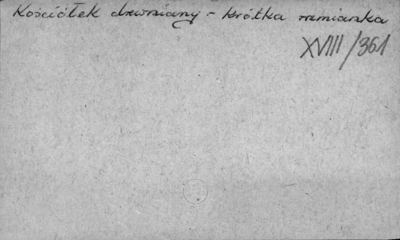 Kościółek drewniany - krótka wzmianka
XVIII/361